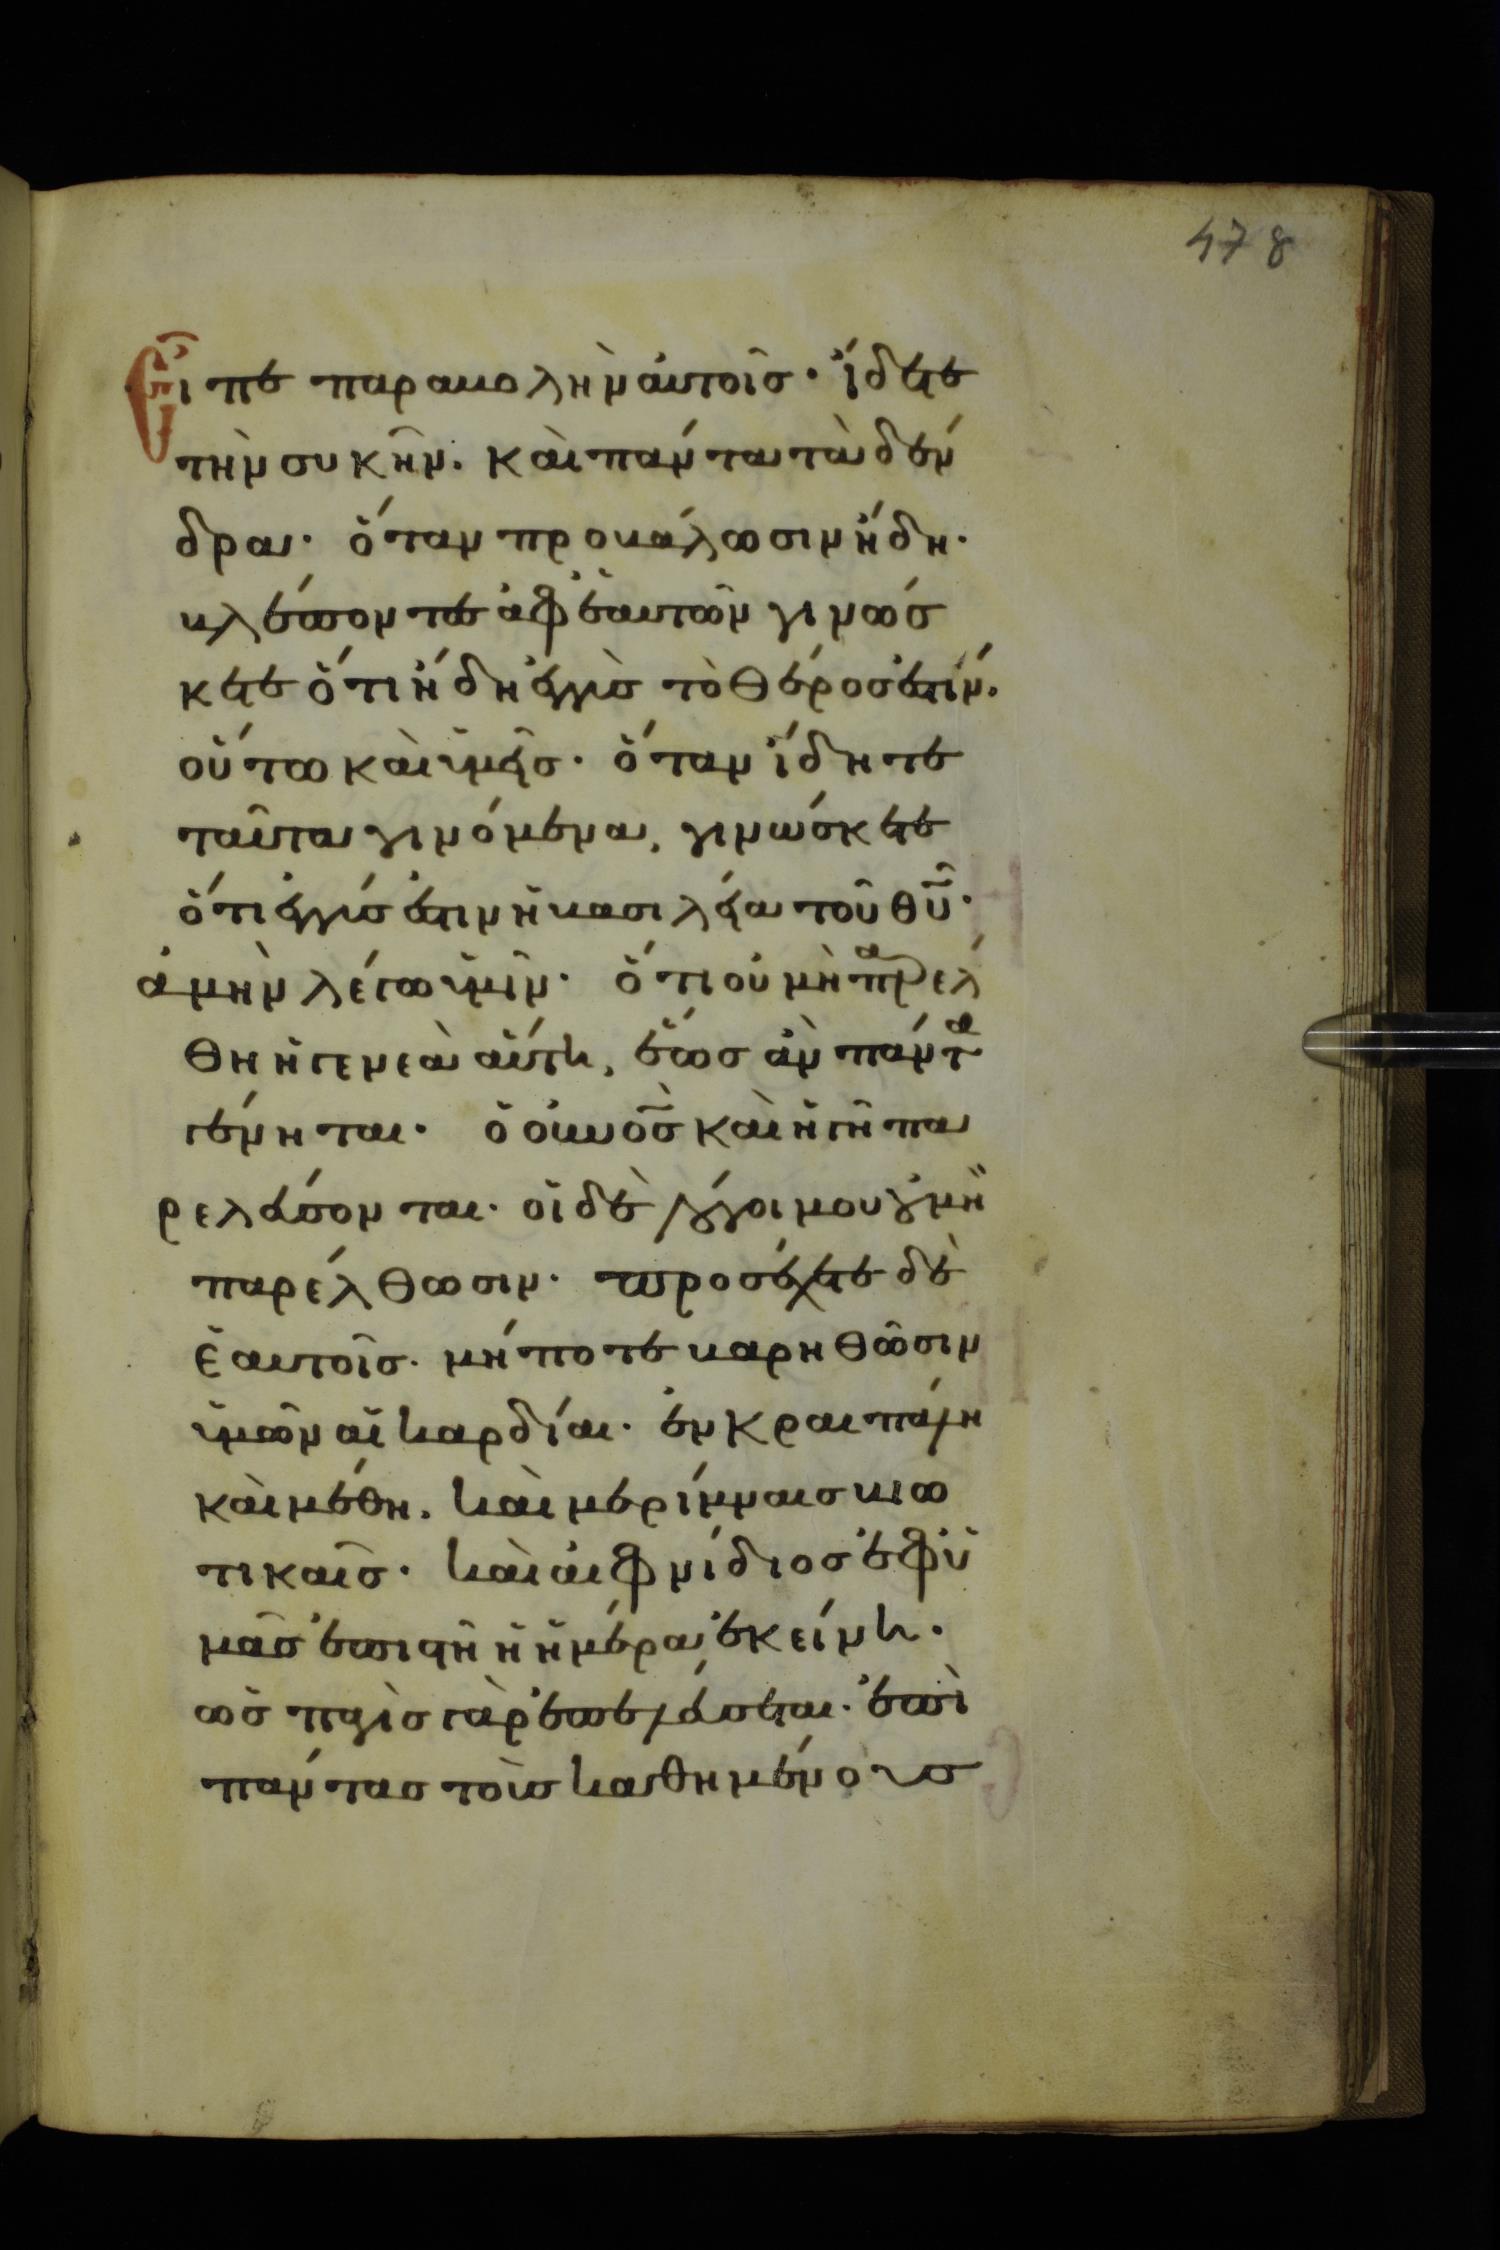 478
Εἶπε παραβολὴν αὐτοῖσ· ἴδετε
τὴν συκῆν. καὶ πάντα τὰ δέν
δρα· ὅταν προβάλωσιν ἤδη·
βλέποντεσ ἀφ ἑαυτῶν γινώσ
κετε ὅτι ἤδη ἐγγὺσ τὸ θέροσ ἐστίν.
οὕτω καὶ ὑμεῖσ· ὅταν ἴδητε
ταῦτα γινόμενα, γινώσκετε
ὅτι ἐγγύσ ἐστιν ἡ βασιλεία τοῦ θῦ·
ἀμὴν λέγω ὑμῖν· ὅτι οὐ μὴ παρέλ
θη ἡ γενεὰ αὕτη, ἕωσ ἂν πάντα
γένηται· ὁ οὐνὸσ καὶ ἡ γῆ πα
ρελεύσονται· οἱ δὲ λόγοι μου οὐ μὴ
παρέλθωσιν· προσέχετε δὲ
ἑαυτοῖσ· μήποτε βαρηθῶσιν
ὑμῶν αἱ καρδίαι· ἐν κραιπάλη
καὶ μέθη. καὶ μερίμναισ βιω
τικαῖσ· καὶ αἰφνίδιοσ ἐφ ὑ
μᾶσ ἐπιστῆ ἡ ἡμέρα ἐκείνη.
ὡσ παγὶσ γὰρ ἐπελεύσεται· ἐπὶ
πάντασ τοὺσ καθημένουσ